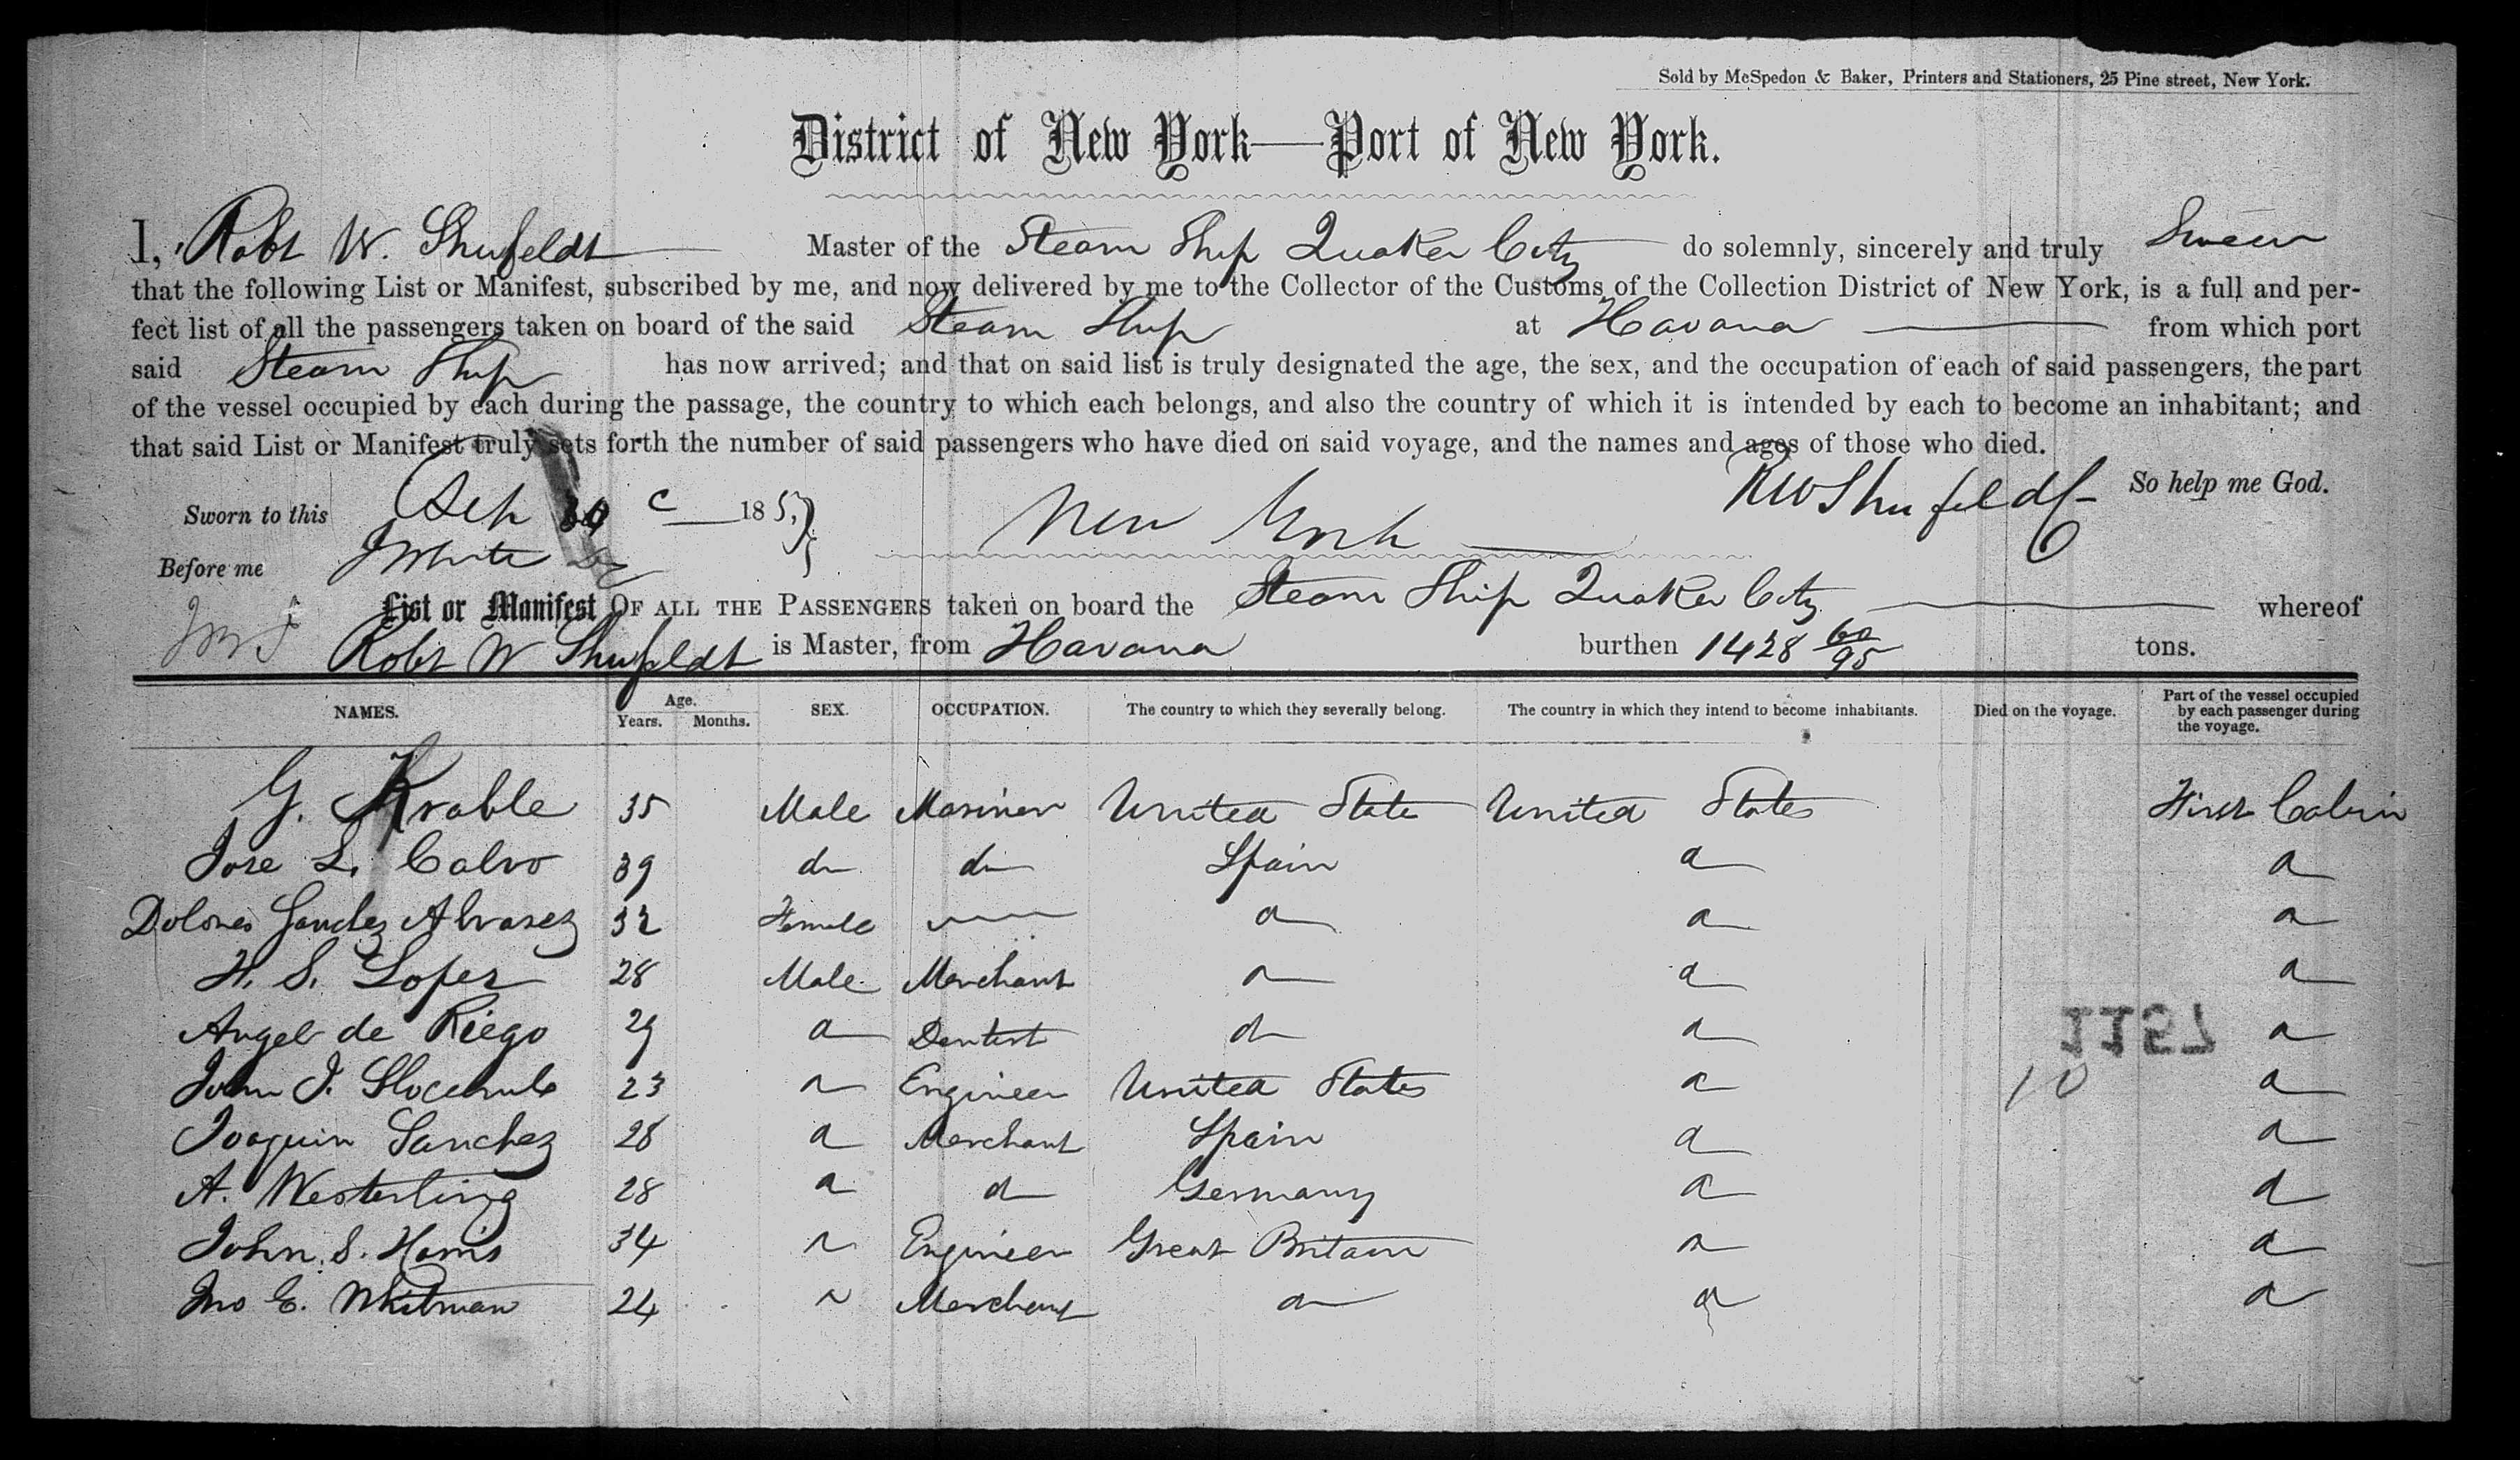 Sold by McSpedon & Baker, Printers and Stationers, 25 Pine street, New York.
District of New York—Port of New York.
I, Robt W. Shufeldt Master of the Steam Ship Quaker City do solemnly, sincerely and truly Swear
that the following List or Manifest, subscribed by me, and now delivered by me to the Collector of the Customs of the Collection District of New York, is a full and per-
fect list of all the passengers taken on board of the said Steam Ship at Havana from which port
said Steam Ship has now arrived; and that on said list is truly designated the age, the sex, and the occupation of each of said passengers, the part
of the vessel occupied by each during the passage, the country to which each belongs, and also the country of which it is intended by each to become an inhabitant; and
that said List or Manifest truly sets forth the number of said passengers who have died on said voyage, and the names and ages of those who died.
Sworn to this Sep 185 New York RW Shufeldt So help me God.
Before me J White
List or Manifest OF ALL THE PASSENGERS taken on board the Steam Ship Quaker City whereof
Robt W Shufeldt is Master, from Havana burthen 1428 60/95 tons.
NAMES. Age. Years. Months. SEX. OCCUPATION. The country to which they severally belong. The country in which they intend to become inhabitants. Died on the voyage. Part of the vessel occupied by each passenger during the voyage.
G. Krable 35 Male Mariner United State United States First Cabin
Jose L. Calvo 39 do do Spain do do
Dolores Sanchez Alvarez 32 Female do do do
H. S. Lopez 28 Male Merchant do do do
Angel de Riego 29 do Dentist do do do
1157
John J. Slocumb 23 do Engineer United States do 10 do
Joaquin Sanchez 28 do Merchant Spain do do
A. Westerling 28 do do Germany do do
John S. Harris 34 do Engineer Great Britain do do
Jno E. Whitman 24 do Merchant do do do